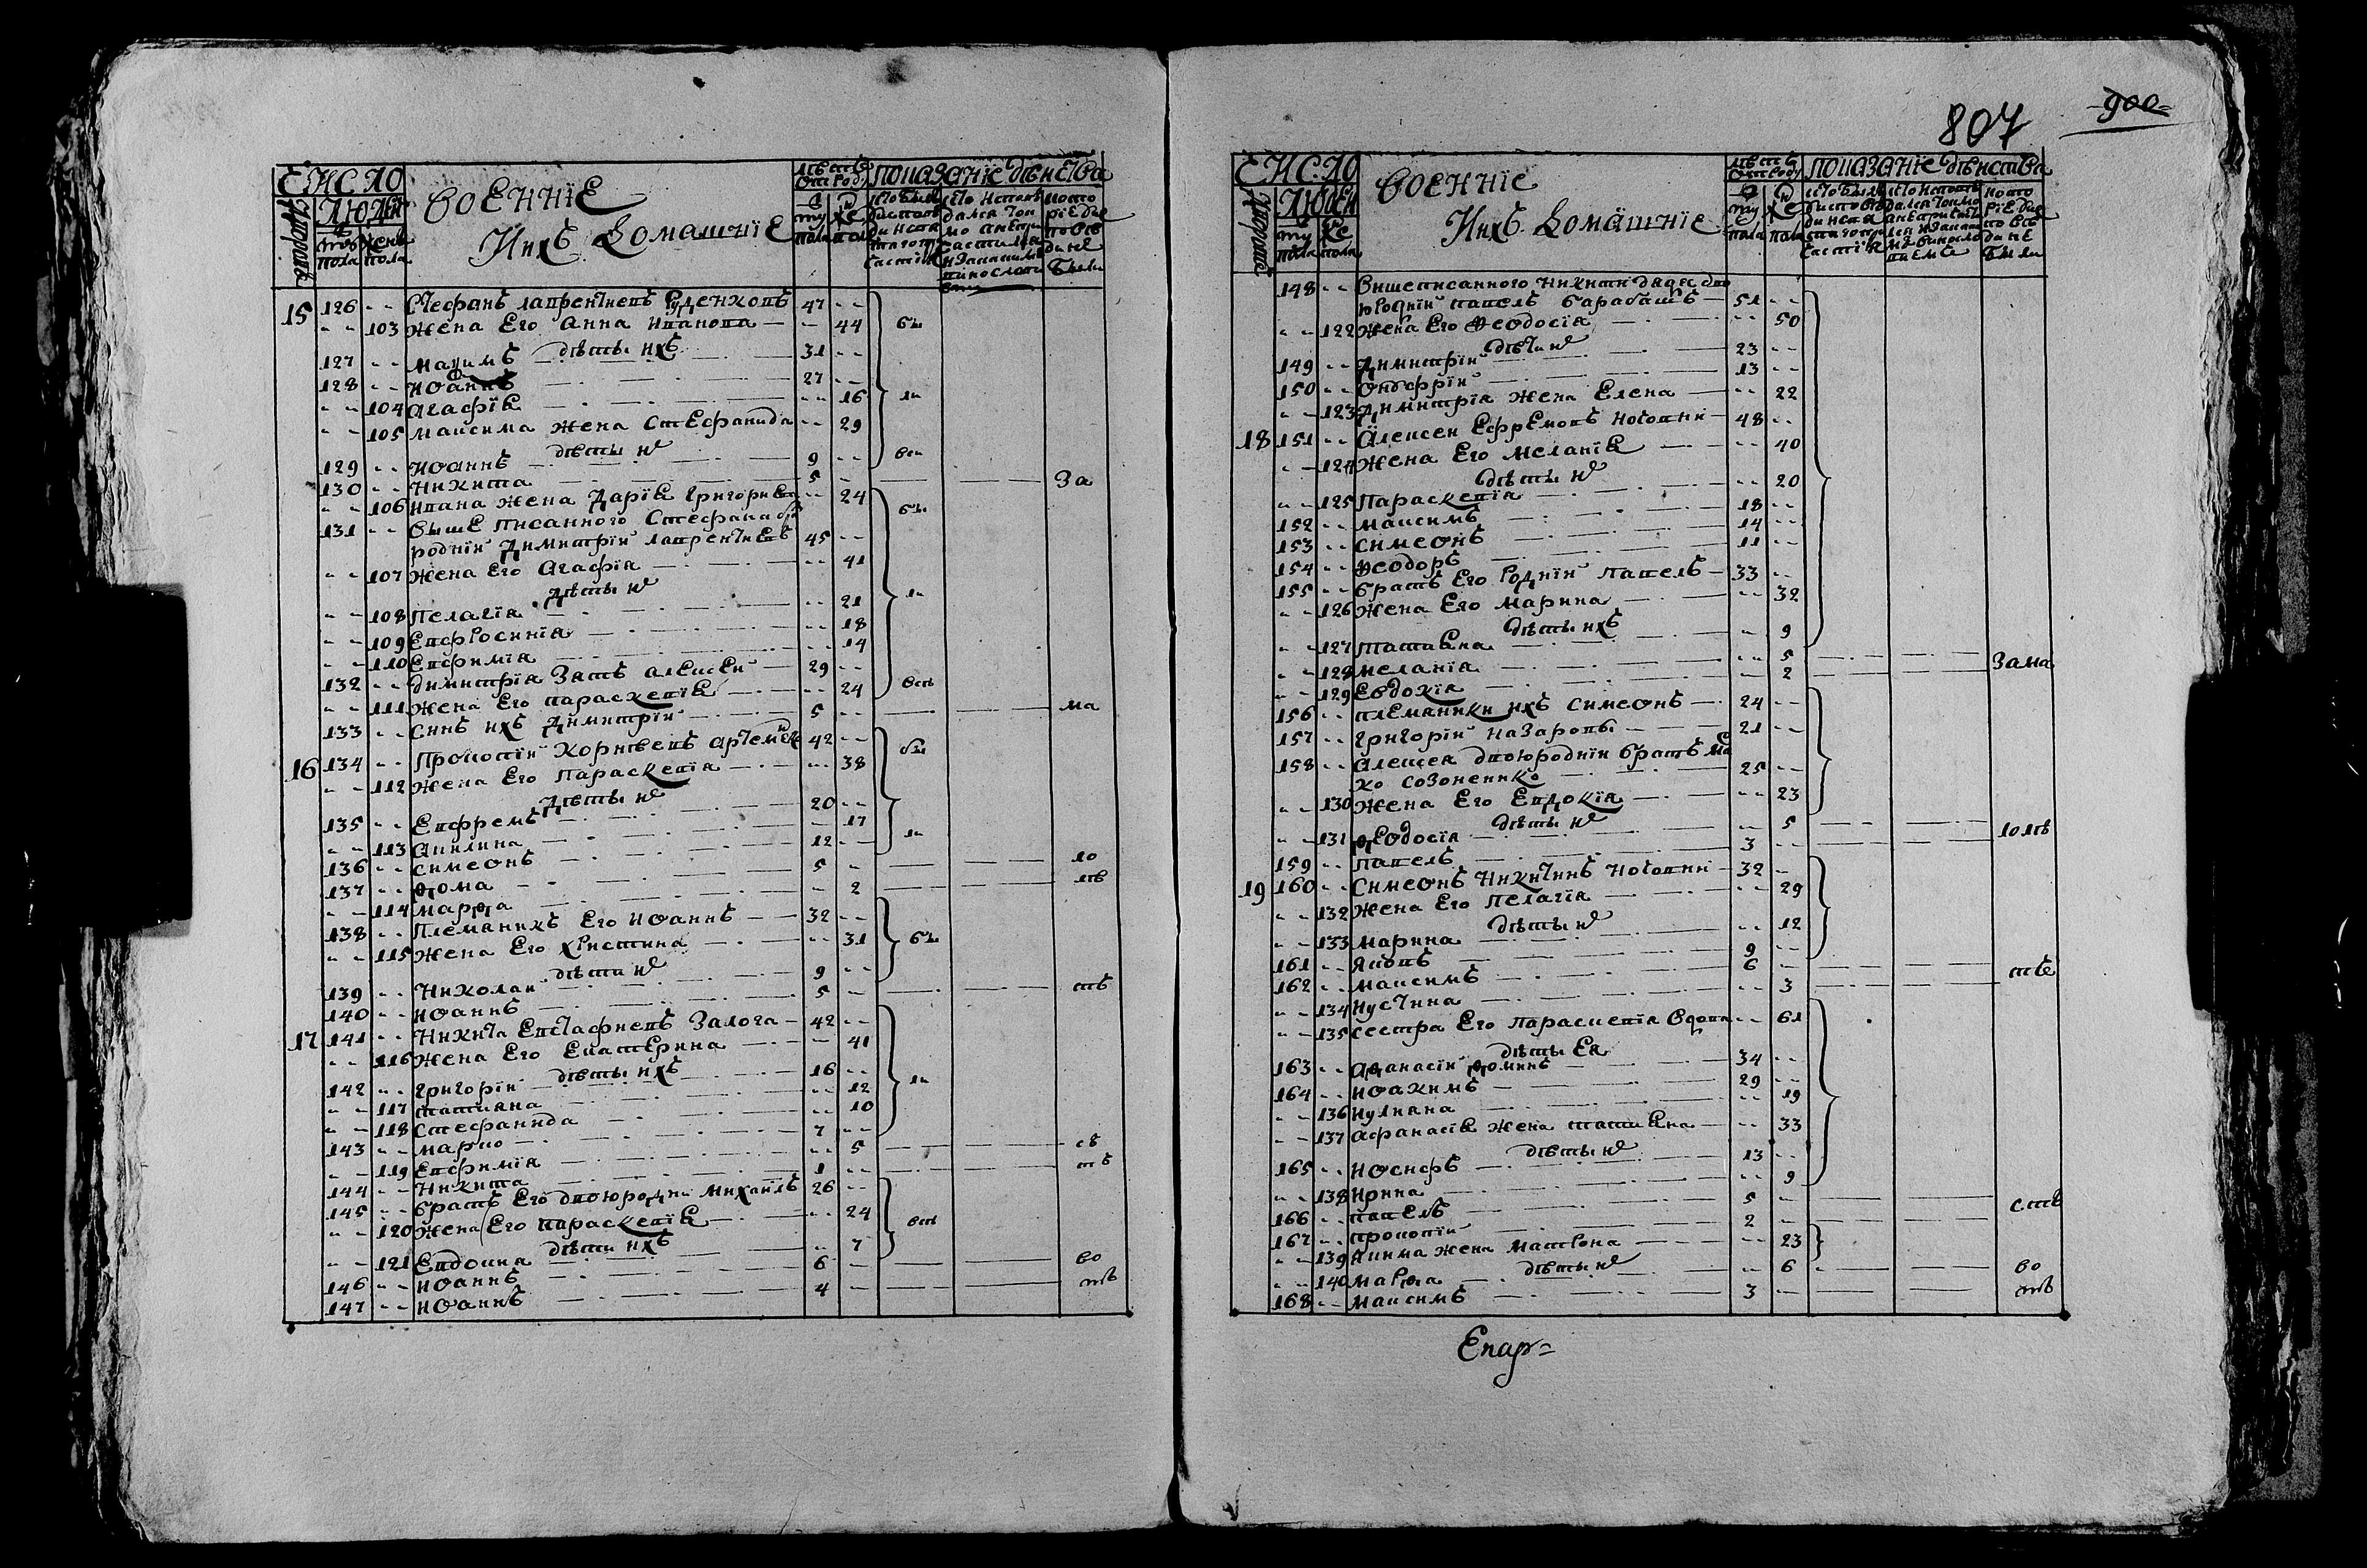 807
900
ЧИСЛО
Людей
Дворовъ
муж пола
женъ пола
ВОЕННІЕ
И ихъ Домашніе
лѣтъ
от роду
му пола
же пола
показаніе дѣйства
15 126 Стефанъ лаврентиевъ Руденковъ 47
103 жена Его Анна Иванова 44 бы
дѣты ихъ
127 Маѯимъ 31
128 Иоаннъ 27
104 Агафія 16 ли
105 максима жена Стефанида 29
дѣты ихъ
129 Иоаннъ 9 вси
130 Никита 5 За
106 Ивана жена Дарія Григориева 24
131 выше писанного Стефана бр бы
родній Димитрій лаврентиевъ 45
107 жена Его Агафія 41
дѣты ихъ ли
108 Пелагія 21
109 Евфросинія 18
110 Евфимія 14
132 Димитрія Зять алексей 29
111 жена Его параскевія 24 всѣ
133 синъ ихъ Димитрій 5 ма
16 134 Прокопій Корнѣевъ 42 бы
112 жена Его Параскевія 38
дѣты ихъ
135 Евфремъ 20
113 Акилина 17 ли
136 симеонъ 12
137 ѳома 5 ло
114 марѳа 2 лѣ
138 Племаникъ Его Иоаннъ 32
115 жена Его христина 31 бы
дѣти ихъ
139 Николай 9
140 Иоаннъ 5 тъ
17 141 Никита Евстафиевъ Залога 42
116 жена Его Екатерина 41
дѣты ихъ
142 григорій 16 ли
117 татияна 12
118 стефанида 10
143 марко 7
119 Евфимія 5 св
144 Никита 1 тъ
145 братъ Его двоюродни михаилъ 26
120 жена Его параскевія 24 всѣ
дѣти ихъ
121 Евдокиа 7
146 Иоаннъ 6 во
147 Иоаннъ 4 тъ
807
ЧИСЛО
Людей
Дворовъ
му пола
же пола
ВОЕННІЕ
И ихъ Домашніе
лѣтъ
от роду
му пола
же пола
показаніе дѣйства
148 Вишеписанного Никити
юродній павелъ барабашъ 51
122 жена Его Ѳеодосія 50
дѣти ихъ
149 Димитрій 23
150 Онуфрій 13
123 Димитрія жена Елена 22
18 151 Алексей Ефремовъ 48
124 жена Его меланія 40
дѣты ихъ
125 Параскевія 20
152 максимъ 18
153 симеонъ 14
154 Ѳеодоръ 11
155 братъ Его родній павелъ 33
126 жена Его марина 32
дѣты ихъ
127 татияна 9
128 меланія 5 зама
129 Евдокія 2
156 племаники ихъ симеонъ 24
157 григорій назаровы 21
158 Алексея двоюродній братъ Ма
ко созоненико 25
130 жена Его Евдокія 23
дѣты ихъ
131 ѳеодосія 5 лолѣ
159 павелъ 3
19 160 симеонъ Никитинъ 32
132 жена Его пелагія 29
дѣты ихъ
133 марина 12
161 Яковъ 9
162 максимъ 6 тъ
134 Иустина 3
135 сестра Его параскевія вдова 61
дѣты Ея
163 Аѳанасій ѳоминъ 34
164 Иоакимъ 29
136 Иулиана 19
137 афанасія жена татияна 33
дѣты ихъ
165 Иосифъ 13
138 Ирина 9
166 павелъ 5 стъ
167 прокопій 2
139 Якима жена матрона 23
дѣты ихъ
140 марѳа 6 во
168 максимъ 3 тъ
Епар=